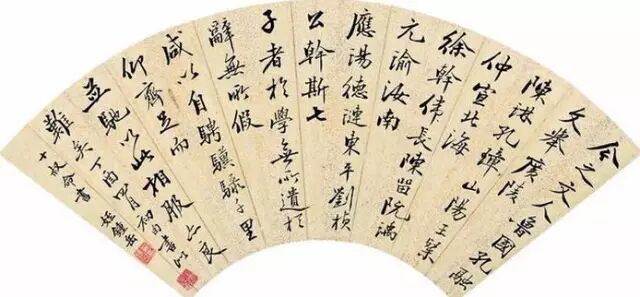 今之文人魯國孔融
文舉廣陵
陳琳孔璋山陽王粲
仲宣北海
徐幹偉長陳留阮瑀
元渝汝南
應湯德漣東平劉楨
公幹斯七
子者於學無所遺於
辭無所假
咸以自騁驥騄千里
仰齊足而
並馳以此相服亦良
難矣丁酉四月初
書